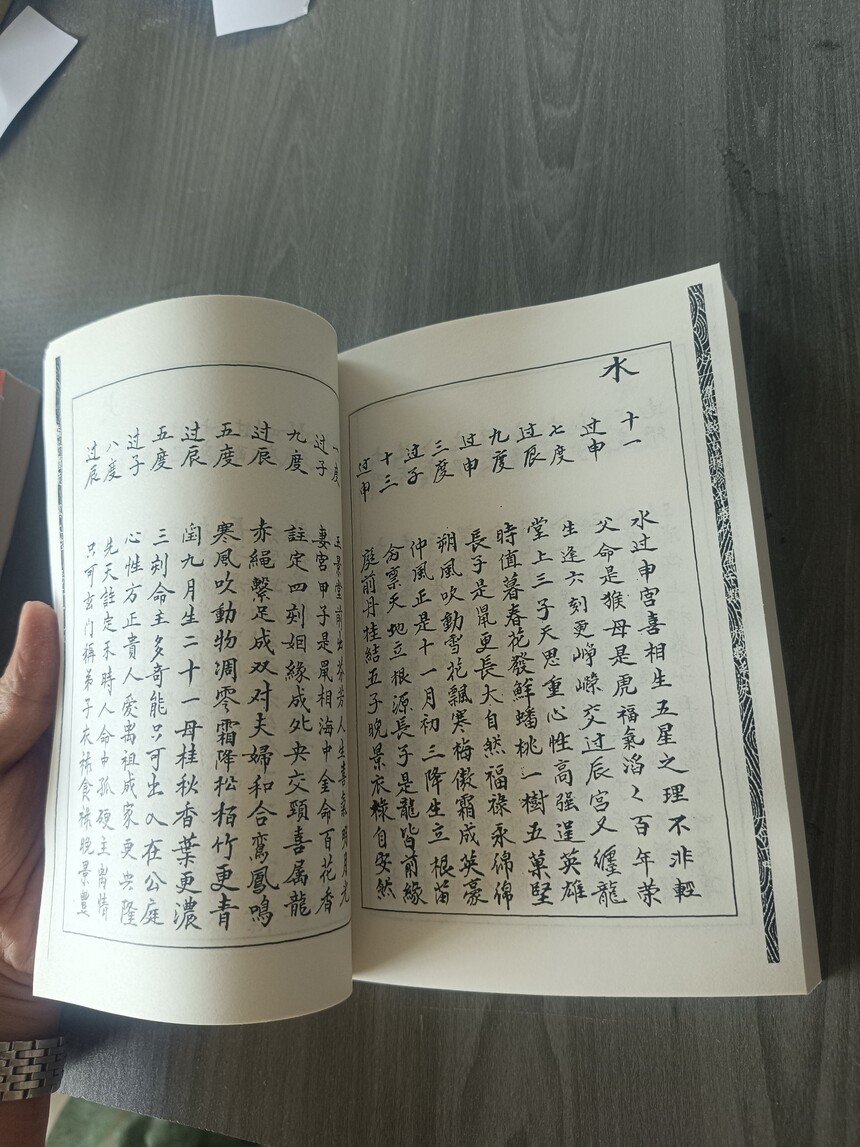 水
十一
水过申宫喜相生五星之理不非輕
过申
父命是猴母是虎福氣滔々百年荣
七度
生逢六刻更崢嶸交过辰宫又纏龍
过辰
堂上三子天思重心性高强逞英雄
九度
時值暮春花發鮮蟠桃一樹五菓堅
过申
長子是鼠更長大自然福禄永綿綿
三度
朔風吹動雪花飄寒梅傲霜成英豪
过子
仲風正是十一月初三降生立根苗
十三
命禀天地立根源長子是龍皆前緣
过申
庭前丹桂結五子晚景衣禄自安然
一度
玉景堂前出芬芳人生喜氣明月光
过子
妻宫甲子是鼠相海中金命百花香
九度
註定四刻姻緣成处央交頸喜属龍
过辰
赤绳繫足成双对夫婦和合鸞鳳鳴
五度
寒風吹動物凋零霜降松栢竹更青
过辰
閏九月生二十一母桂秋香葉更濃
五度
三刻命主多奇能只可出入在公庭
过子
心性方正貴人愛离祖成家更興隆
八度
先天註定未時人命中孤硬主离情
过辰
只可玄门稱弟子衣禄食禄晚景豊